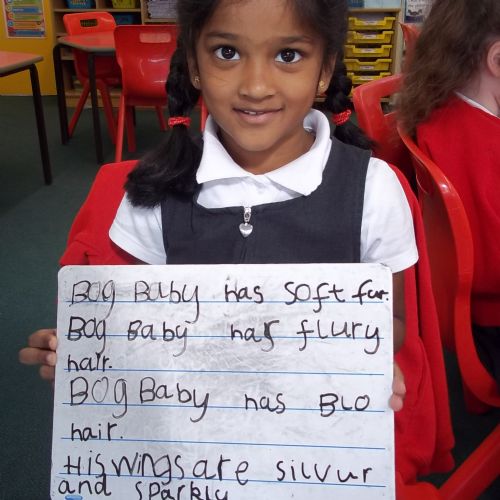 BOg BaBy has soft fur.
Bog Baby has flury
hair.
BOg Baby has BLO
hair.
His wings are silvur
and sparkly